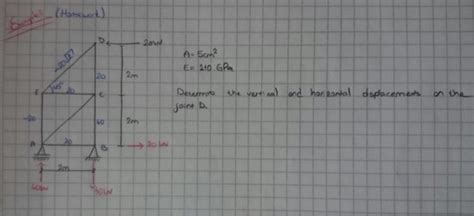 Example (Homework)
D
20kN
A= 5cm²
E= 210 GPa
-20√2
45°
20
2m
E
20
C
Determine the vertical and horizontal displacements on the
joint D.
-20
60
2m
A
20
B
20 kN
2m
40kN